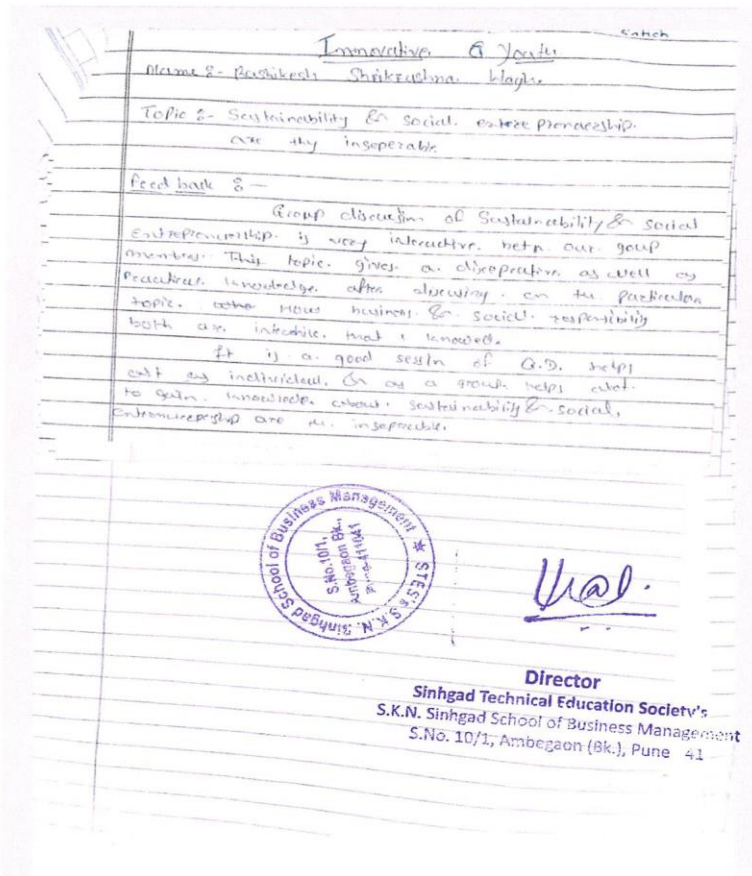 Satish
Innovative & Youth
Name :- Rushikesh Shrikrushna Wagh.
Topic :- Sustainability & social.
are thy inseperable
Feed back :-
Group discussion of Sustainability & social
Entrepreneurship. is very interactive. betn our. goup
members. This topic. gives. a. as well as
Practical knowledge. after on the Particular
topic. How business. & social. responsibility
both are. that i knowed.
It is a good of G.D. helps
as individual. & as a group. helps
to gain. knowledge. about. sustainability & social.
are the inseperable.
Sinhgad School of Business Management ★ STES's S.K.N.
S.No.10/1,
Ambegaon Bk.,
Pune-411041
Director
Sinhgad Technical Education Society's
S.K.N. Sinhgad School of Business Management
S.No. 10/1, Ambegaon (Bk.), Pune 41